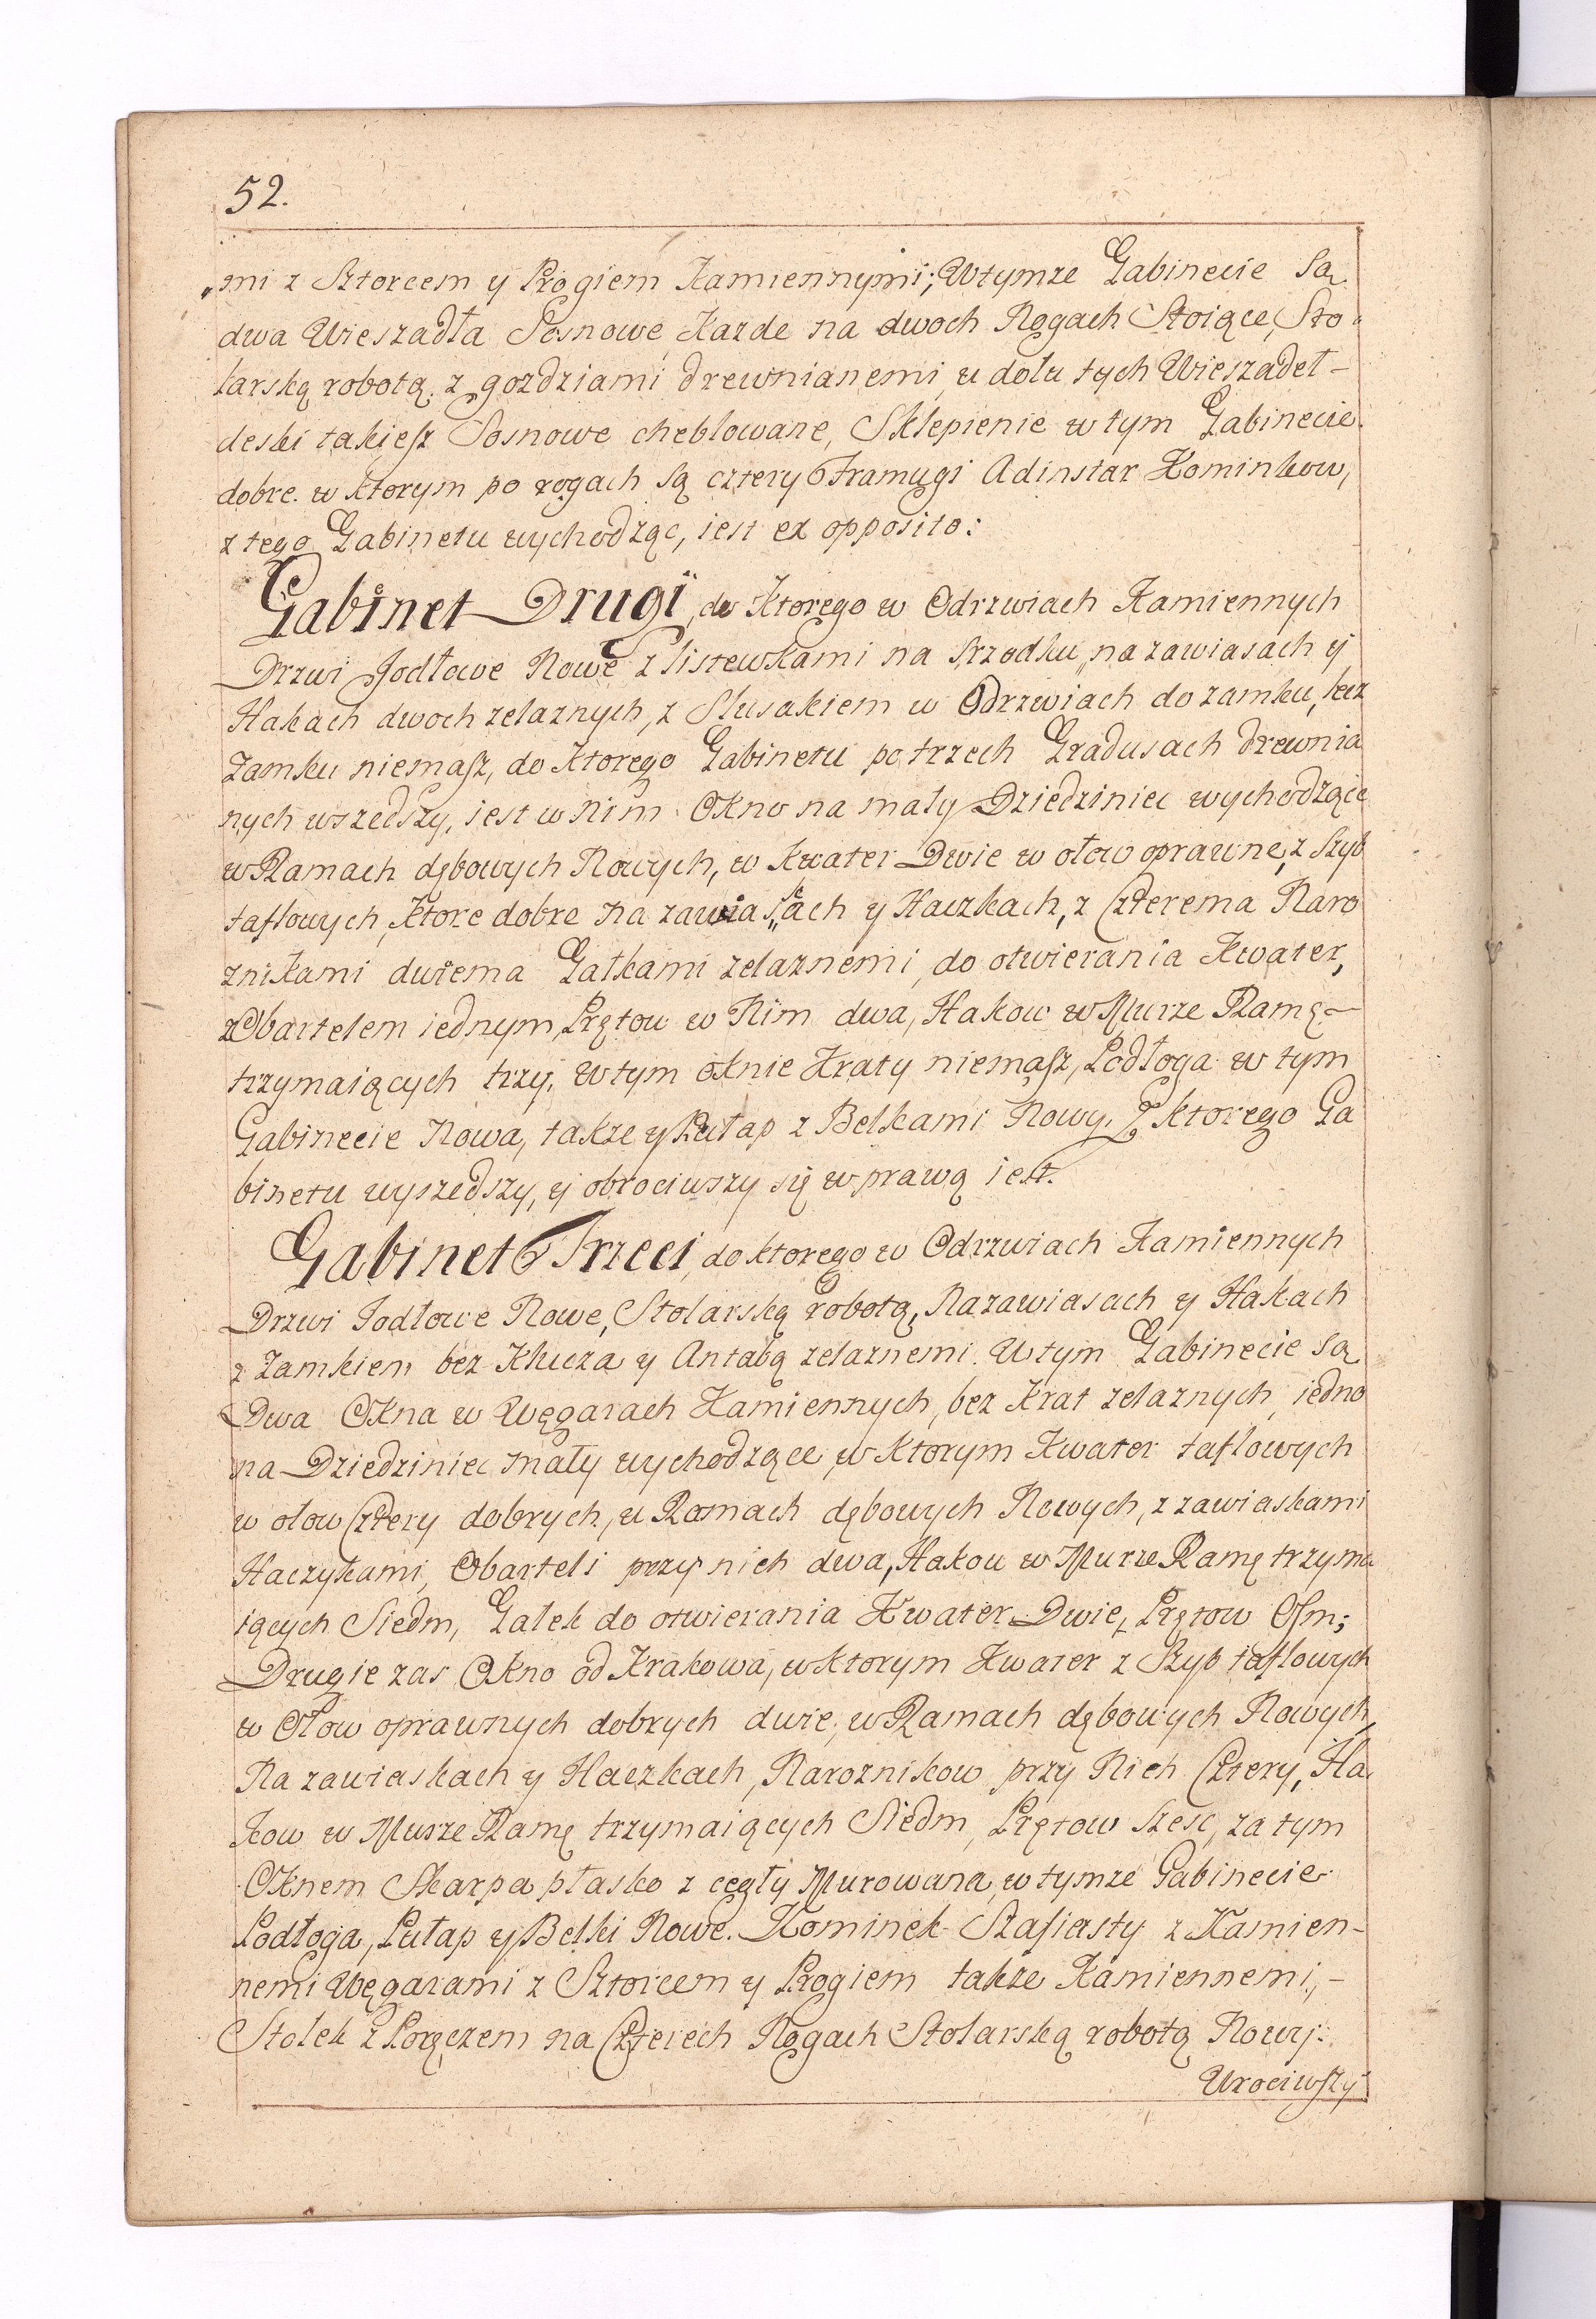 52.
„mi z Sztorcem y Progiem Kamiennymi; Wtymze Gabinecie Są
dwa Wieszadła Sosnowe, Kazde na dwoch Nogach Stoiące, Sto-
larską robotą, z gozdziami drewnianemi, u dołu tych Wieszadeł –
deski takiesz Sosnowe cheblowane, Sklepienie w tym Gabinecie
dobre. w ktorym po rogach Są cztery Framugi Adinstar Kominkow,
z tego Gabinetu wychodząc, iest ex opposito:
Gabinet Drugi, do Ktorego w Odrzwiach Kamiennych
Drzwi Jodłowe Nowe z listewkami na srzodku, na zawiasach y
Hakach dwoch zelaznych, z Slusakiem w Odrzwiach do zamku, lecz
Zamku niemasz, do Ktorego Gabinetu po trzech Gradusach drewnia
nych wszedszy, iest w Nim Okno na mały Dziedziniec wychodzące
w Ramach dębowych Nowych, w Kwater Dwie w ołow oprawne, z Szyb
taflowych, Ktore dobre Na zawiaskach y Haczkach, z Czterema Naro
znikami dwiema Gałkami zelaznemi, do otwierania Kwater,
z Obartelem iednym, Prętow w Nim dwa, Hakow w Murze Ramę –
trzymaiących trzy, w tym oknie Kraty niemasz, Podłoga w tym
Gabinecie Nowa, takze y Pułap z Belkami Nowy. Z ktorego Ga
binetu wyszedszy, y obrociwszy się w prawą iest.
Gabinet Trzeci, do ktorego w Odrzwiach Kamiennych
Drzwi Jodłowe Nowe, Stolarską robotą, Na zawiasach y Hakach
z Zamkiem bez Klucza y Antabą zelaznemi. W tym Gabinecie Są
Dwa Okna w Węgarach Kamiennych, bez Krat zelaznych, iedno
na Dziedziniec mały wychodzące, w Ktorym Kwater taflowych
w ołow Cztery dobrych, w Ramach dębowych Nowych, z zawiaskami
Haczykami, Obarteli przy nich dwa, Hakow w Murze Ramę trzyma
iących Siedm, Gałek do otwierania Kwater Dwie, Prętow Osm;
Drugie zas Okno od Krakowa, w ktorym Kwater z Szyb taflowych
w Ołow oprawnych dobrych dwie, w Ramach dębowych Nowych,
Na zawiaskach y Haczkach, Naroznikow przy Nich Cztery, Ha-
kow w Murze Ramę trzymaiących Siedm, Prętow Szesc, za tym
Oknem Skarpa płasko z cegły Murowana, w tymze Gabinecie
Podłoga, Pułap y Belki Nowe. Kominek Szafiasty z Kamien-
nemi Węgarami z Sztorcem y Progiem takze Kamiennemi, –
Stołek z Poręczem na Czterech Nogach Stolarską robotą Nowy.
Wrociwszy